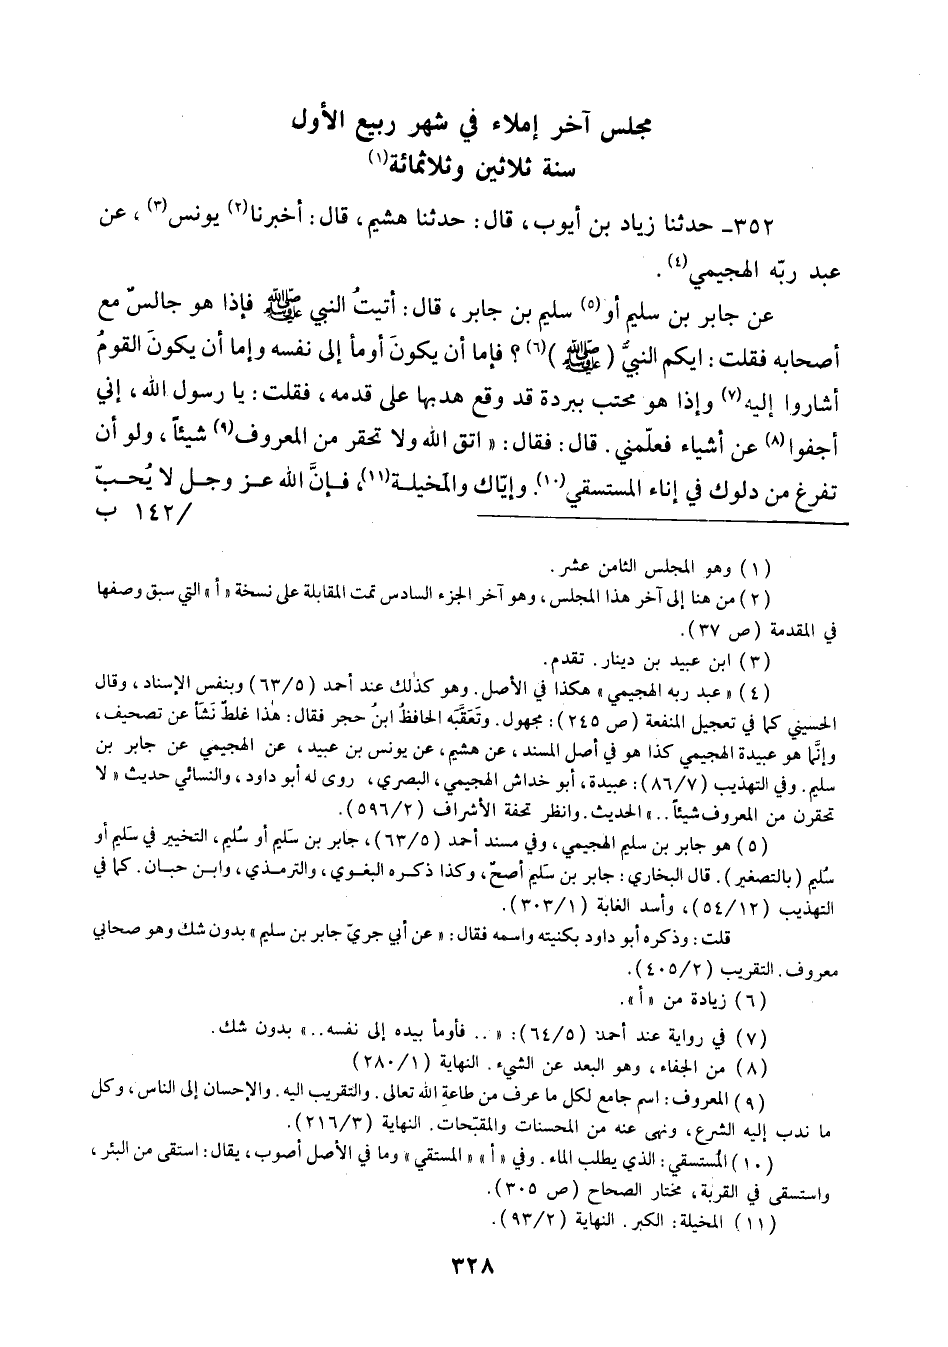 مجلس آخر إملاء في شهر ربيع الأول
سنة ثلاثين وثلاثمائة(١)
٣٥٢ـ حدثنا زياد بن أيوب، قال: حدثنا هشيم، قال: أخبرنا(٢) يونس(٣)، عن
عبد ربّه الهجيمي(٤).
عن جابر بن سليم أو(٥) سليم بن جابر، قال: أتيتُ النبي ﷺ فإذا هو جالسٌ مع
أصحابه فقلت: ايكم النبيُّ (ﷺ)(٦)؟ فإما أن يكونَ أومأ إلى نفسه وإما أن يكونَ القومُ
أشاروا إليه(٧) وإذا هو محتب ببردة قد وقع هدبها على قدمه، فقلت: يا رسول الله، إني
أجفوا(٨) عن أشياء فعلّمني. قال: فقال: « اتق الله ولا تحقر من المعروف(٩) شيئاً، ولو أن
تفرغ من دلوك في إناء المستسقي(١٠). وإيّاك والمخيلة(١١)، فإنَّ الله عز وجل لا يُحبّ
/١٤٢ ب
(١) وهو المجلس الثامن عشر.
(٢) من هنا إلى آخر هذا المجلس، وهو آخر الجزء السادس تمت المقابلة على نسخة « أ » التي سبق وصفها
في المقدمة (ص ٣٧).
(٣) ابن عبيد بن دينار. تقدم.
(٤) « عبد ربه الهجيمي » هكذا في الأصل. وهو كذلك عند أحمد (٦٣/٥) وبنفس الإسناد، وقال
الحسيني كما في تعجيل المنفعة (ص ٢٤٥): مجهول. وتَعَقَّبَه الحافظُ ابنُ حجر فقال: هٰذا غلطٌ نَشَأَ عن تصحيف،
وإنَّما هو عبيدة الهجيمي كذا هو في أصل المسند، عن هشيم، عن يونس بن عبيد، عن الهجيمي عن جابر بن
سليم. وفي التهذيب (٨٦/٧): عبيدة، أبو خداش الهجيمي، البصري، روى له أبو داود، والنسائي حديث « لا
تحقرن من المعروف شيئاً.. » الحديث. وانظر تحفة الأشراف (٥٩٦/٢).
(٥) هو جابر بن سليم الهجيمي، وفي مسند أحمد (٦٣/٥)، جابر بن سَليم أو سُليم، التخيير في سَليم أو
سُليم (بالتصغير). قال البخاري: جابر بن سَليم أصحّ، وكذا ذكره البغوي، والترمذي، وابن حبان. كما في
التهذيب (٥٤/١٢)، وأسد الغابة (٣٠٣/١).
قلت: وذكره أبو داود بكنيته واسمه فقال: « عن أبي جريّ جابر بن سليم » بدون شك وهو صحابي
معروف. التقريب (٤٠٥/٢).
(٦) زيادة من « أ ».
(٧) في رواية عند أحمد (٦٤/٥): « .. فأومأ بيده إلى نفسه.. » بدون شك.
(٨) من الجفاء، وهو البعد عن الشيء. النهاية (٢٨٠/١)
(٩) المعروف: اسم جامع لكل ما عرف من طاعةِ الله تعالى. والتقريب اليه. والإحسان إلى الناس، وكل
ما ندب إليه الشرع، ونهى عنه من المحسنات والمقبّحات. النهاية (٢١٦/٣).
(١٠) المُستسقي: الذي يطلب الماء. وفي « أ » « المستقي » وما في الأصل أصوب، يقال: استقى من البئر،
واستسقى في القربة، مختار الصحاح (ص ٣٠٥).
(١١) المخيلة: الكبر. النهاية (٩٣/٢).
٣٢٨